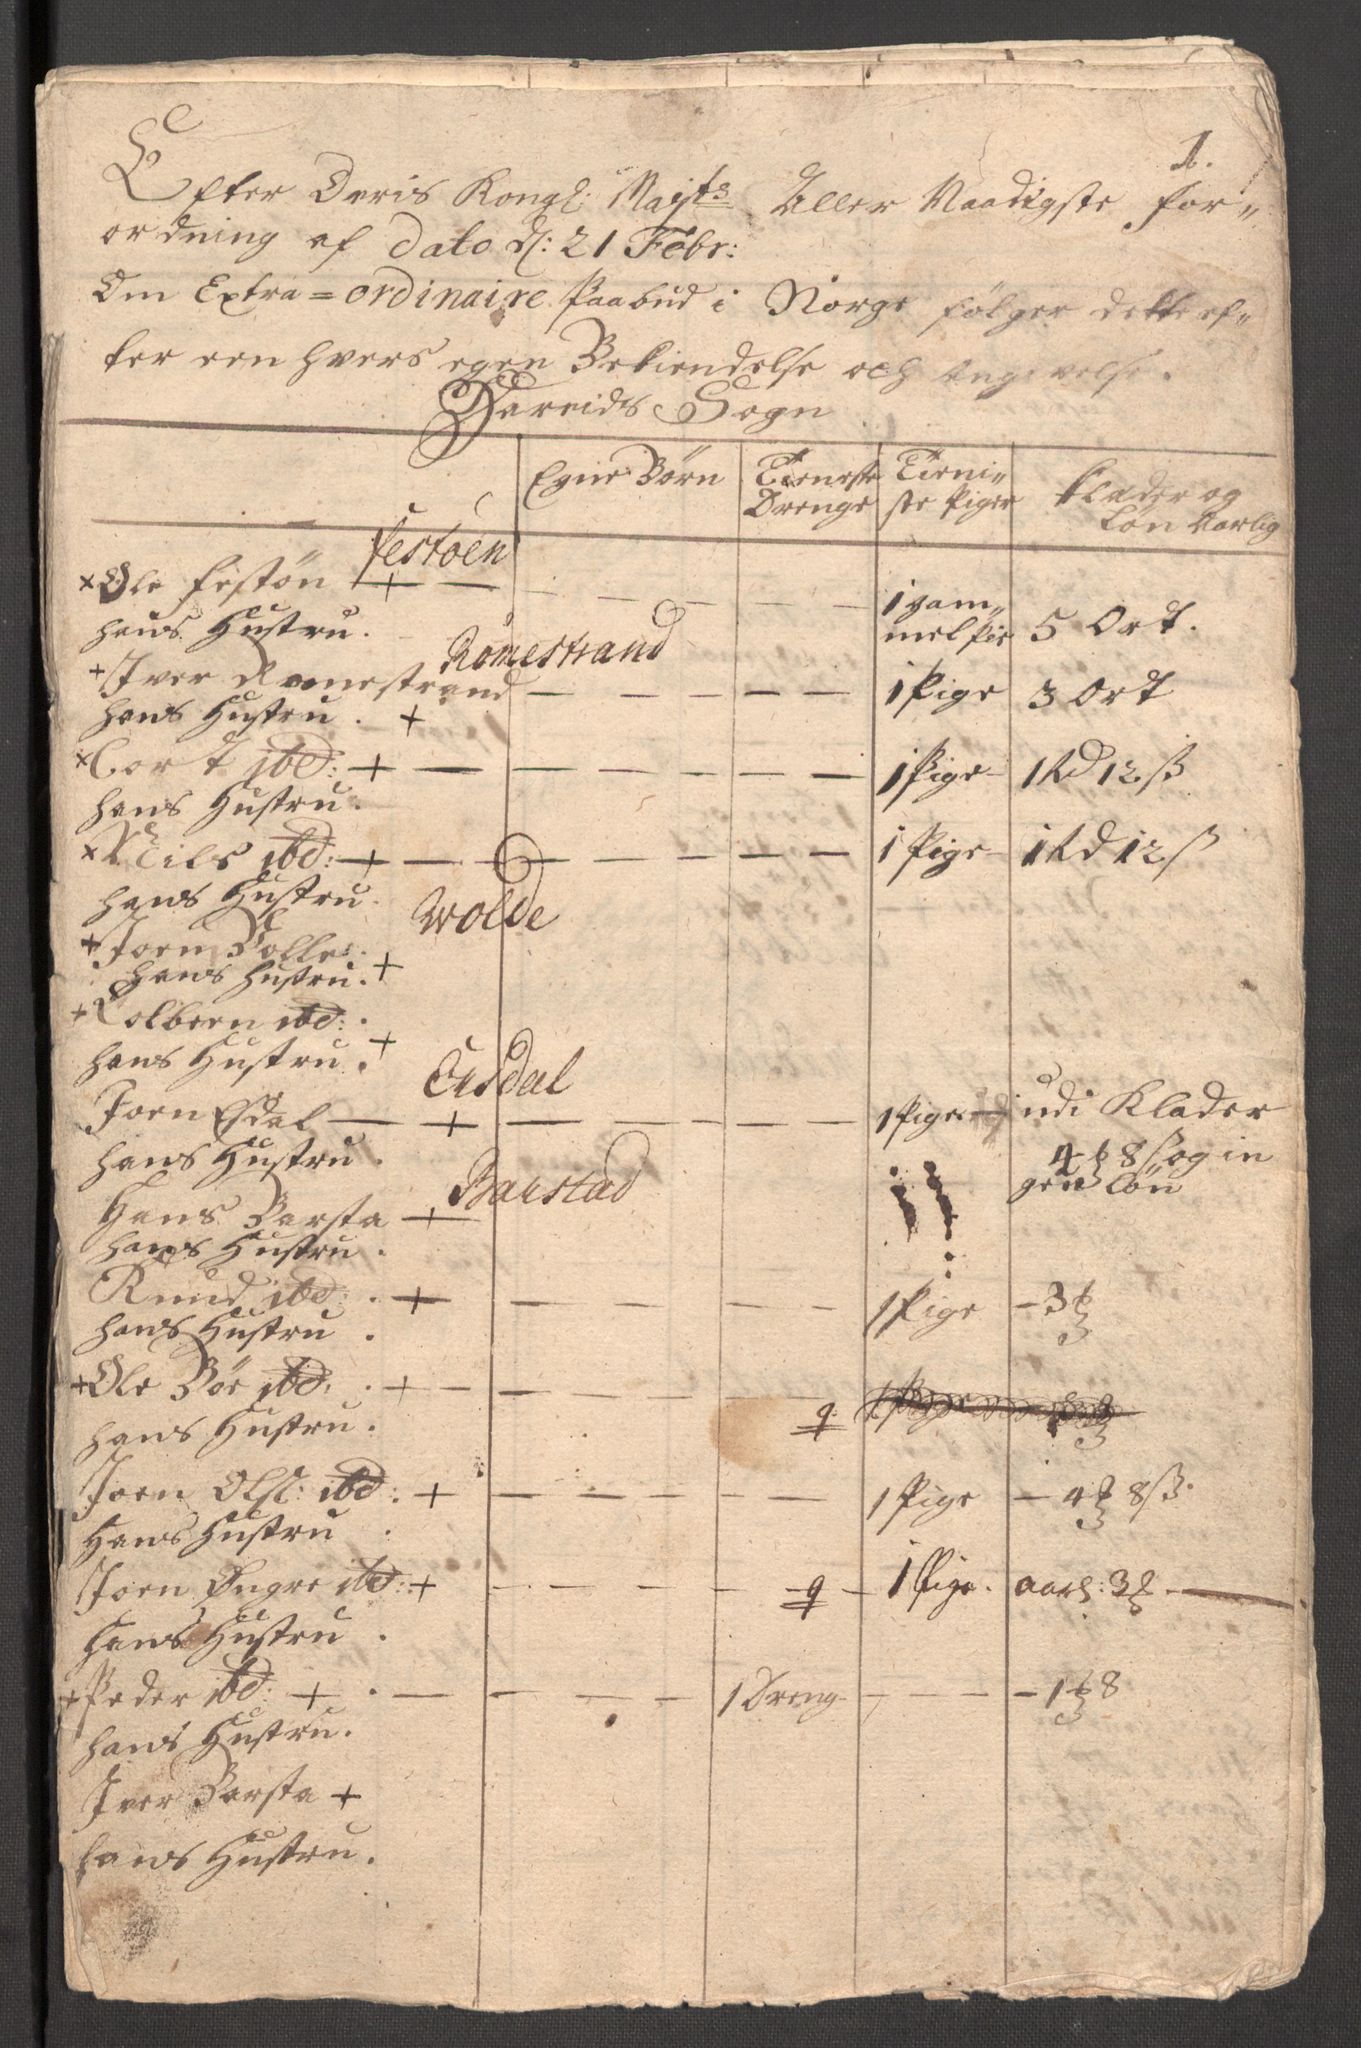 1.
Efter Deris Kongl: Mayts Aller Naadigste for„
ordning af Dato d: 21 Febr:
Om Extra=ordinaire Paabud i Norge følger dette ef„
ter een hvers egen Bekiendelse och Angivelse.
Dareids Sogn
Egne Børn Tieneste Tieni- Klæder og
Drenge ste Piger Løn Aarlig
Festøen
×Ole Festøn + — — — — 1 gam„
hans Hustru. mel Pie 5 Ort.
Romestrand
+Iver Romestrand — — — — 1 Pige 3 Ort
hans Hustru. +
×Cort ibd: + — — — — 1 Pige 1 Rd 12 ß
hans Hustru.
×Nils ibd: + — — — — 1 Pige 1 Rd 12 ß
hans Hustru.
Wolde
+Joen Volle:
hans Hustru. +
+Colbern ibd:.
hans Hustru. +
Eusdal
Joen Esdal — + — — — — 1 Pige — udi Klader
hans Hustru. 4 ß 8 ß og in
gen Løn
Barstad
Hans Barsta +
hans Hustru.
Knud ibd: . + — — — 1 Pige — 3
hans Hustru.
+Ole Böe ibd: . + — — — —
hans Hustru. q:
Joen Olss: ibd: + — — — — 1 Pige — 4 8 ß.
Hans Hustru.
Joen Yngre ibd: + — — — q — 1 Pige. aarl: 3
Hans Hustru.
+Peder ibd: + . — — — 1 Dreng — — — 1 8
hans Hustru.
Iver Barsta +
hans Hustru.